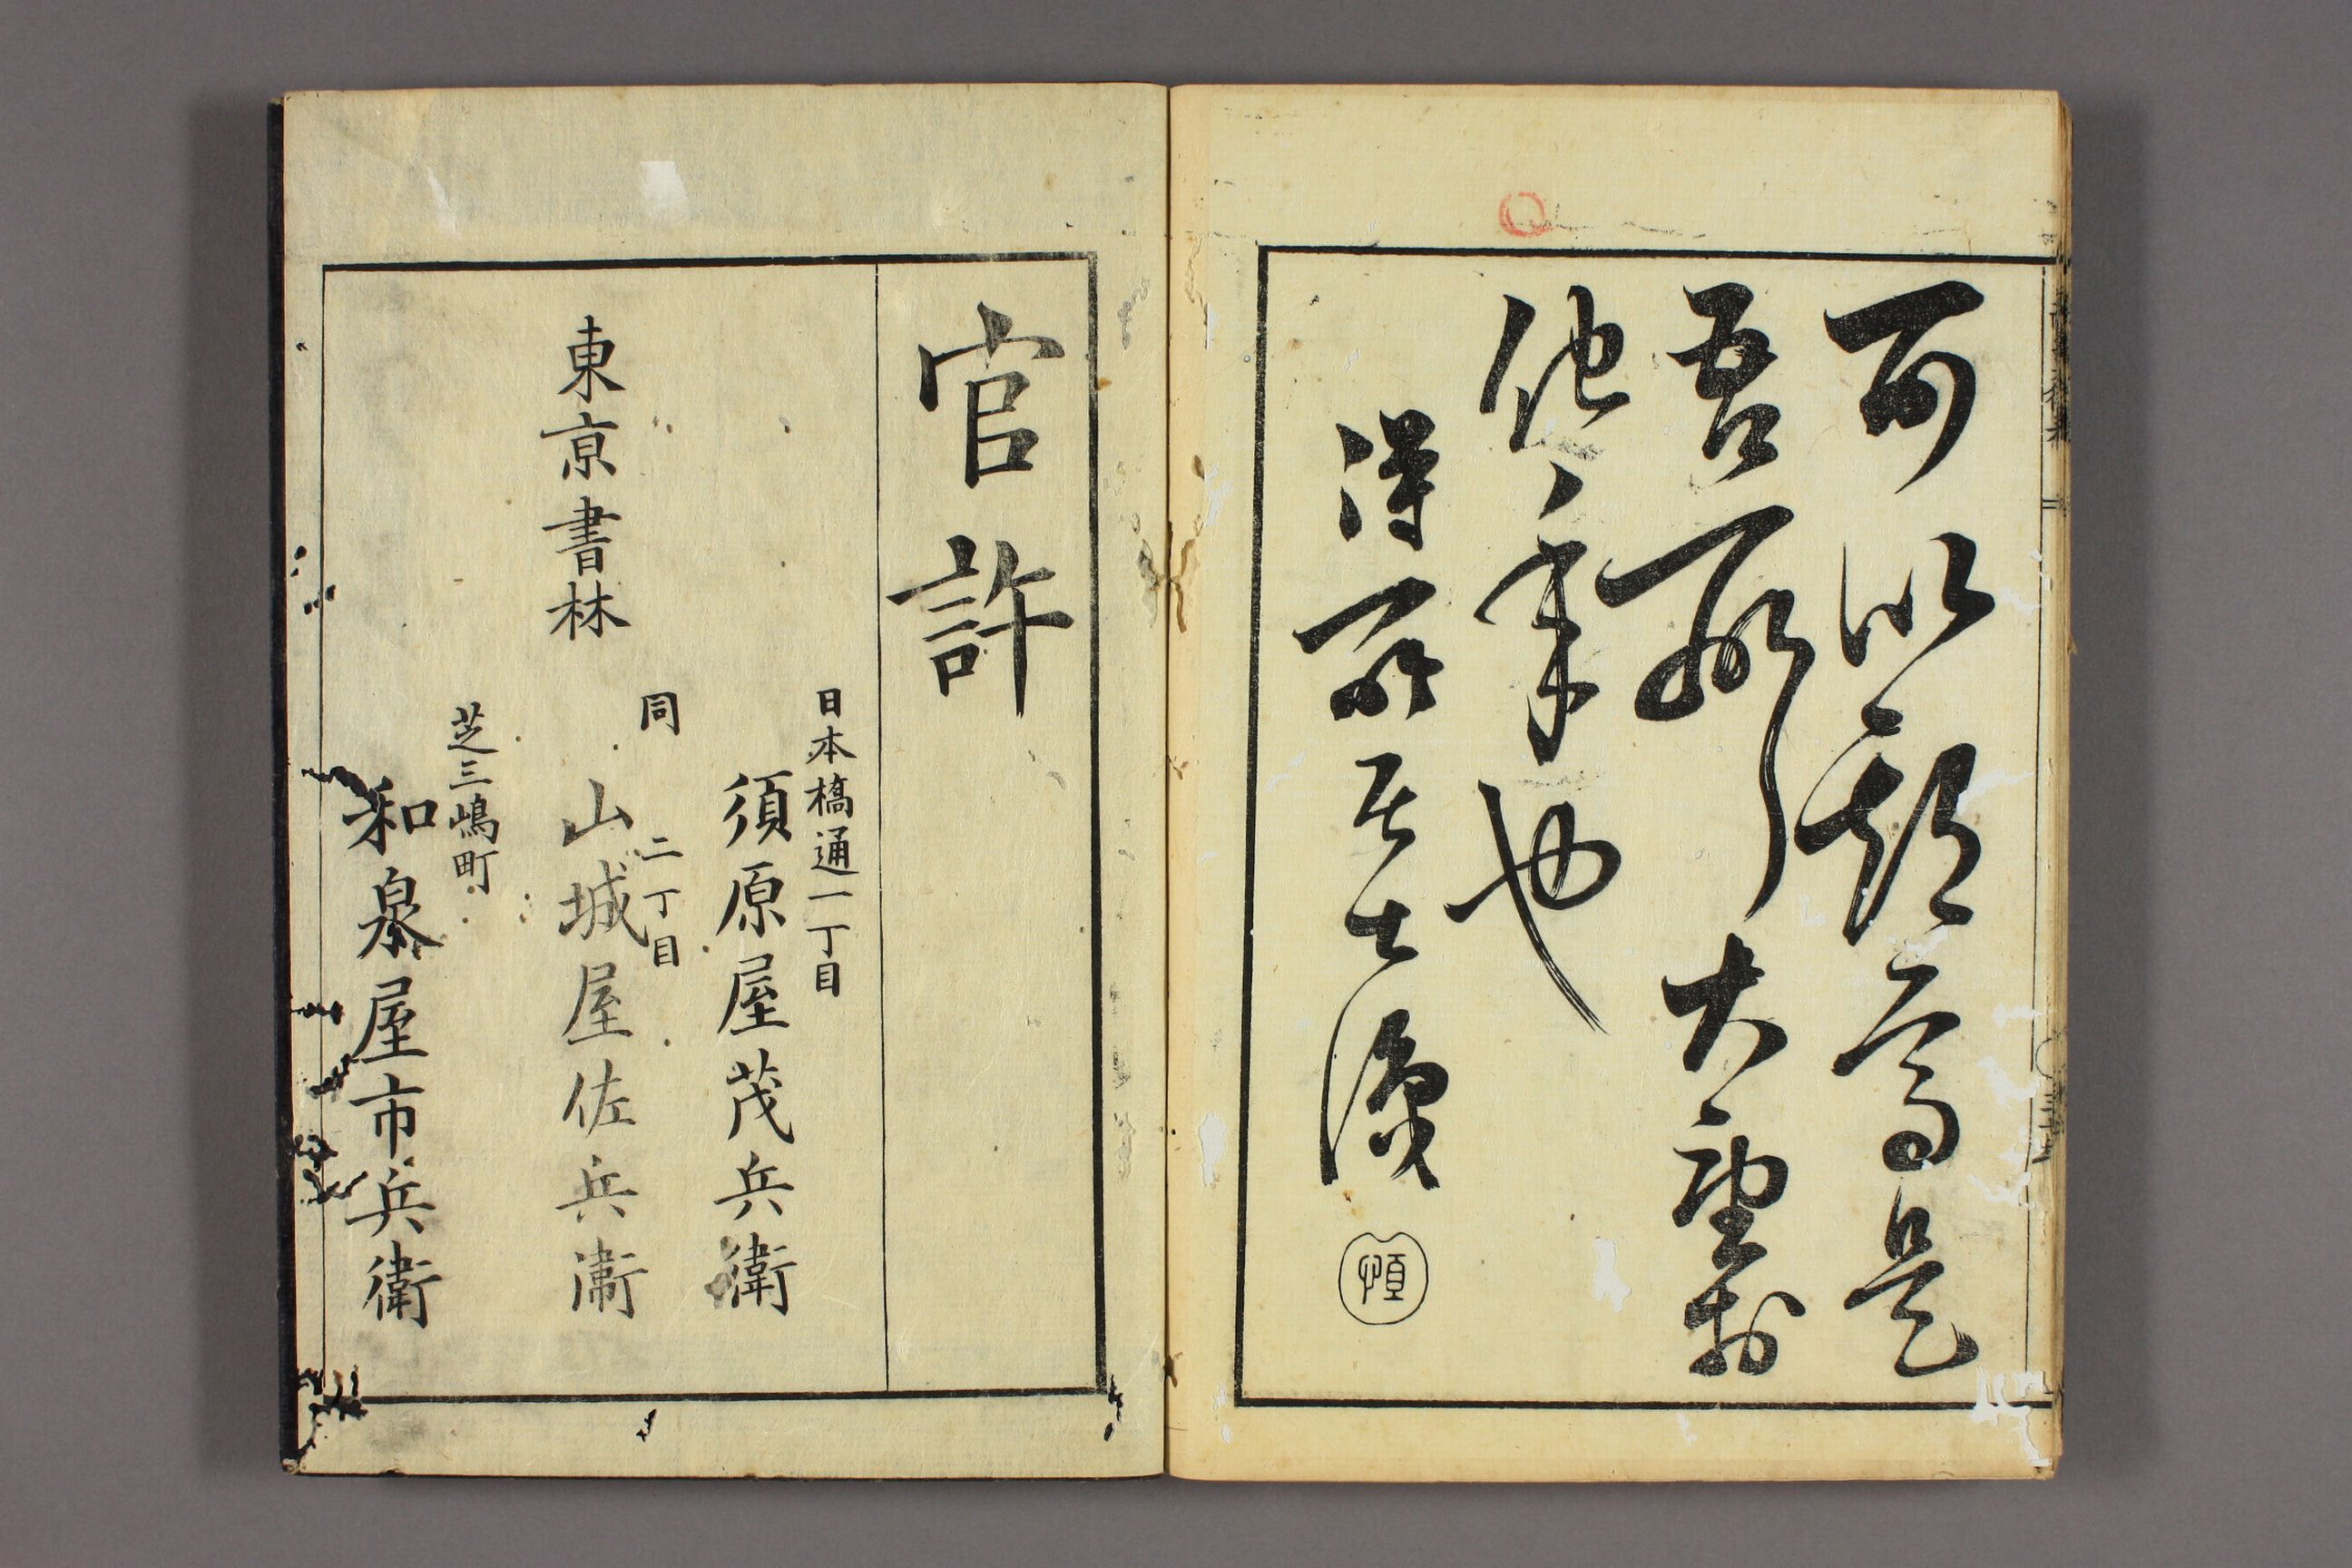 可以觀焉是
吾所大望於
他年也
得所居士濱
官許
日本橋通一丁目
須原屋茂兵衛
同 二丁目
東京書林 山城屋佐兵衛
芝三嶋町
和泉屋市兵衛